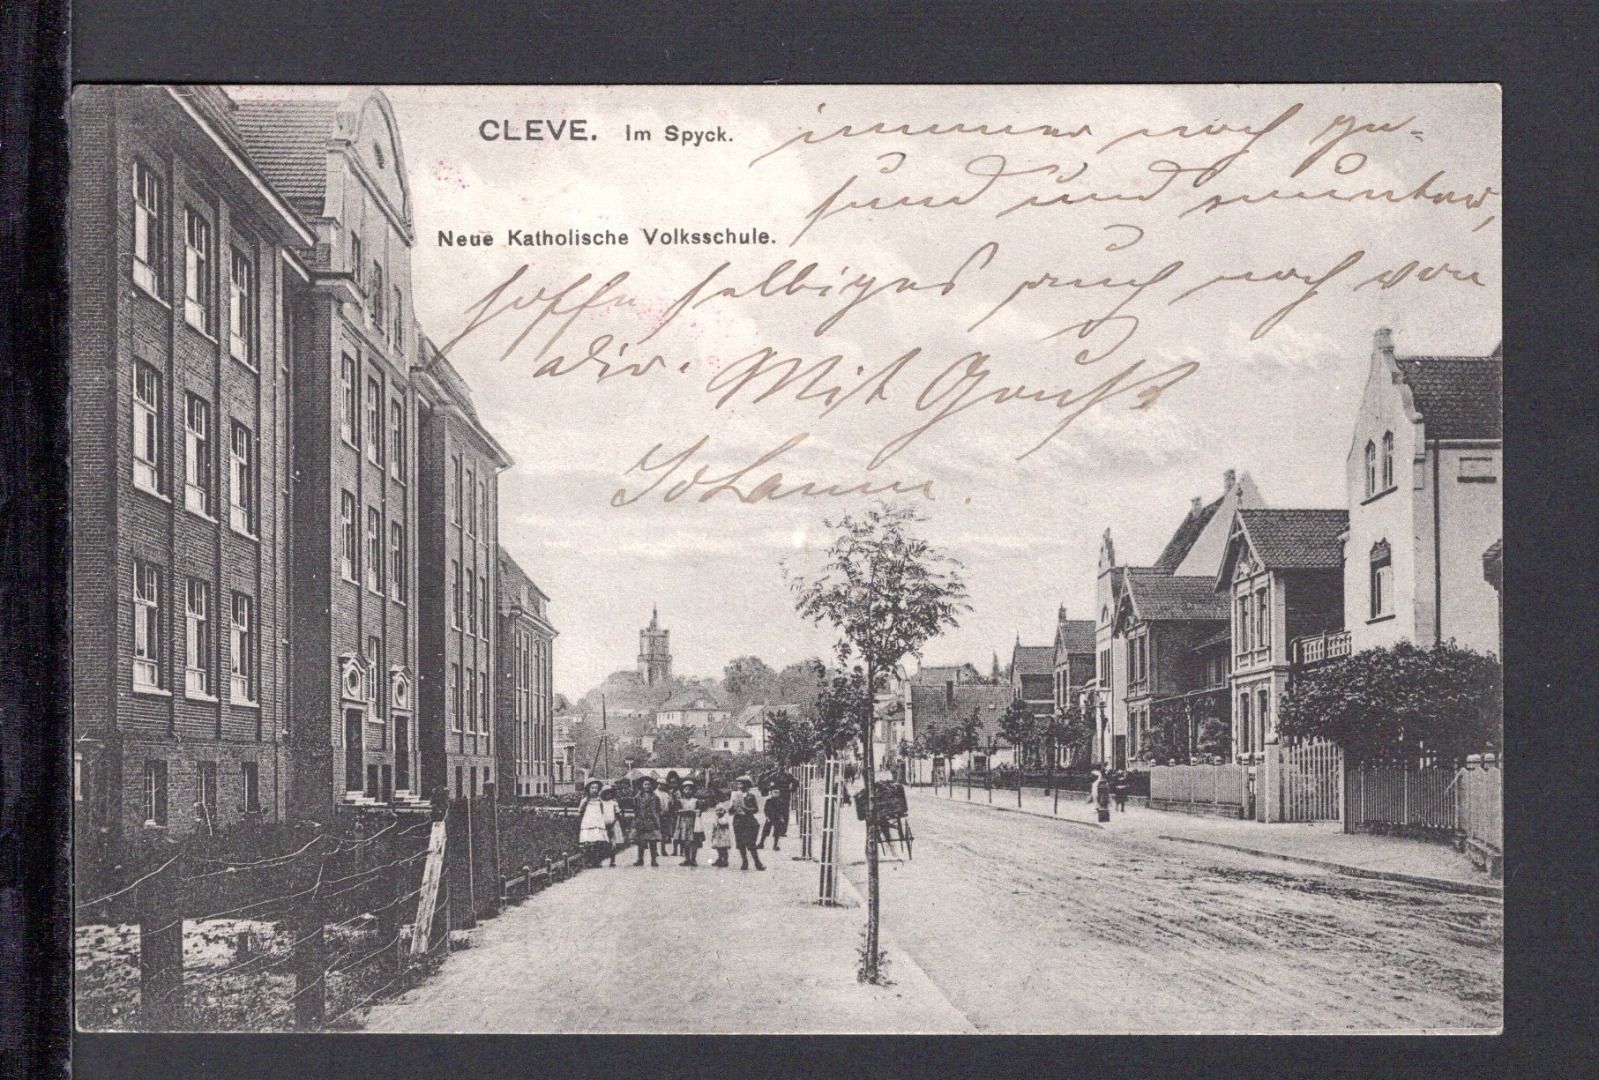 CLEVE. Im Spyck.
Neue Katholische Volksschule.
immer noch ge-
sund und munter,
hoffe selbiges auch noch von
dir. Mit Gruß
Johann.